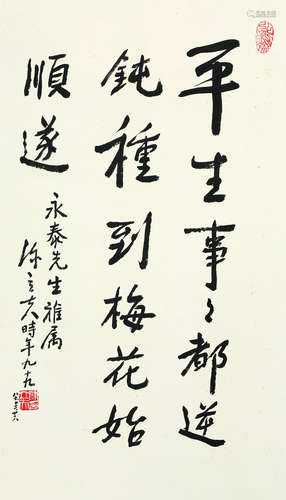 平生事々都逆
鈍種到梅花始
順遂
永泰先生雅属
陳立夫時年九十九